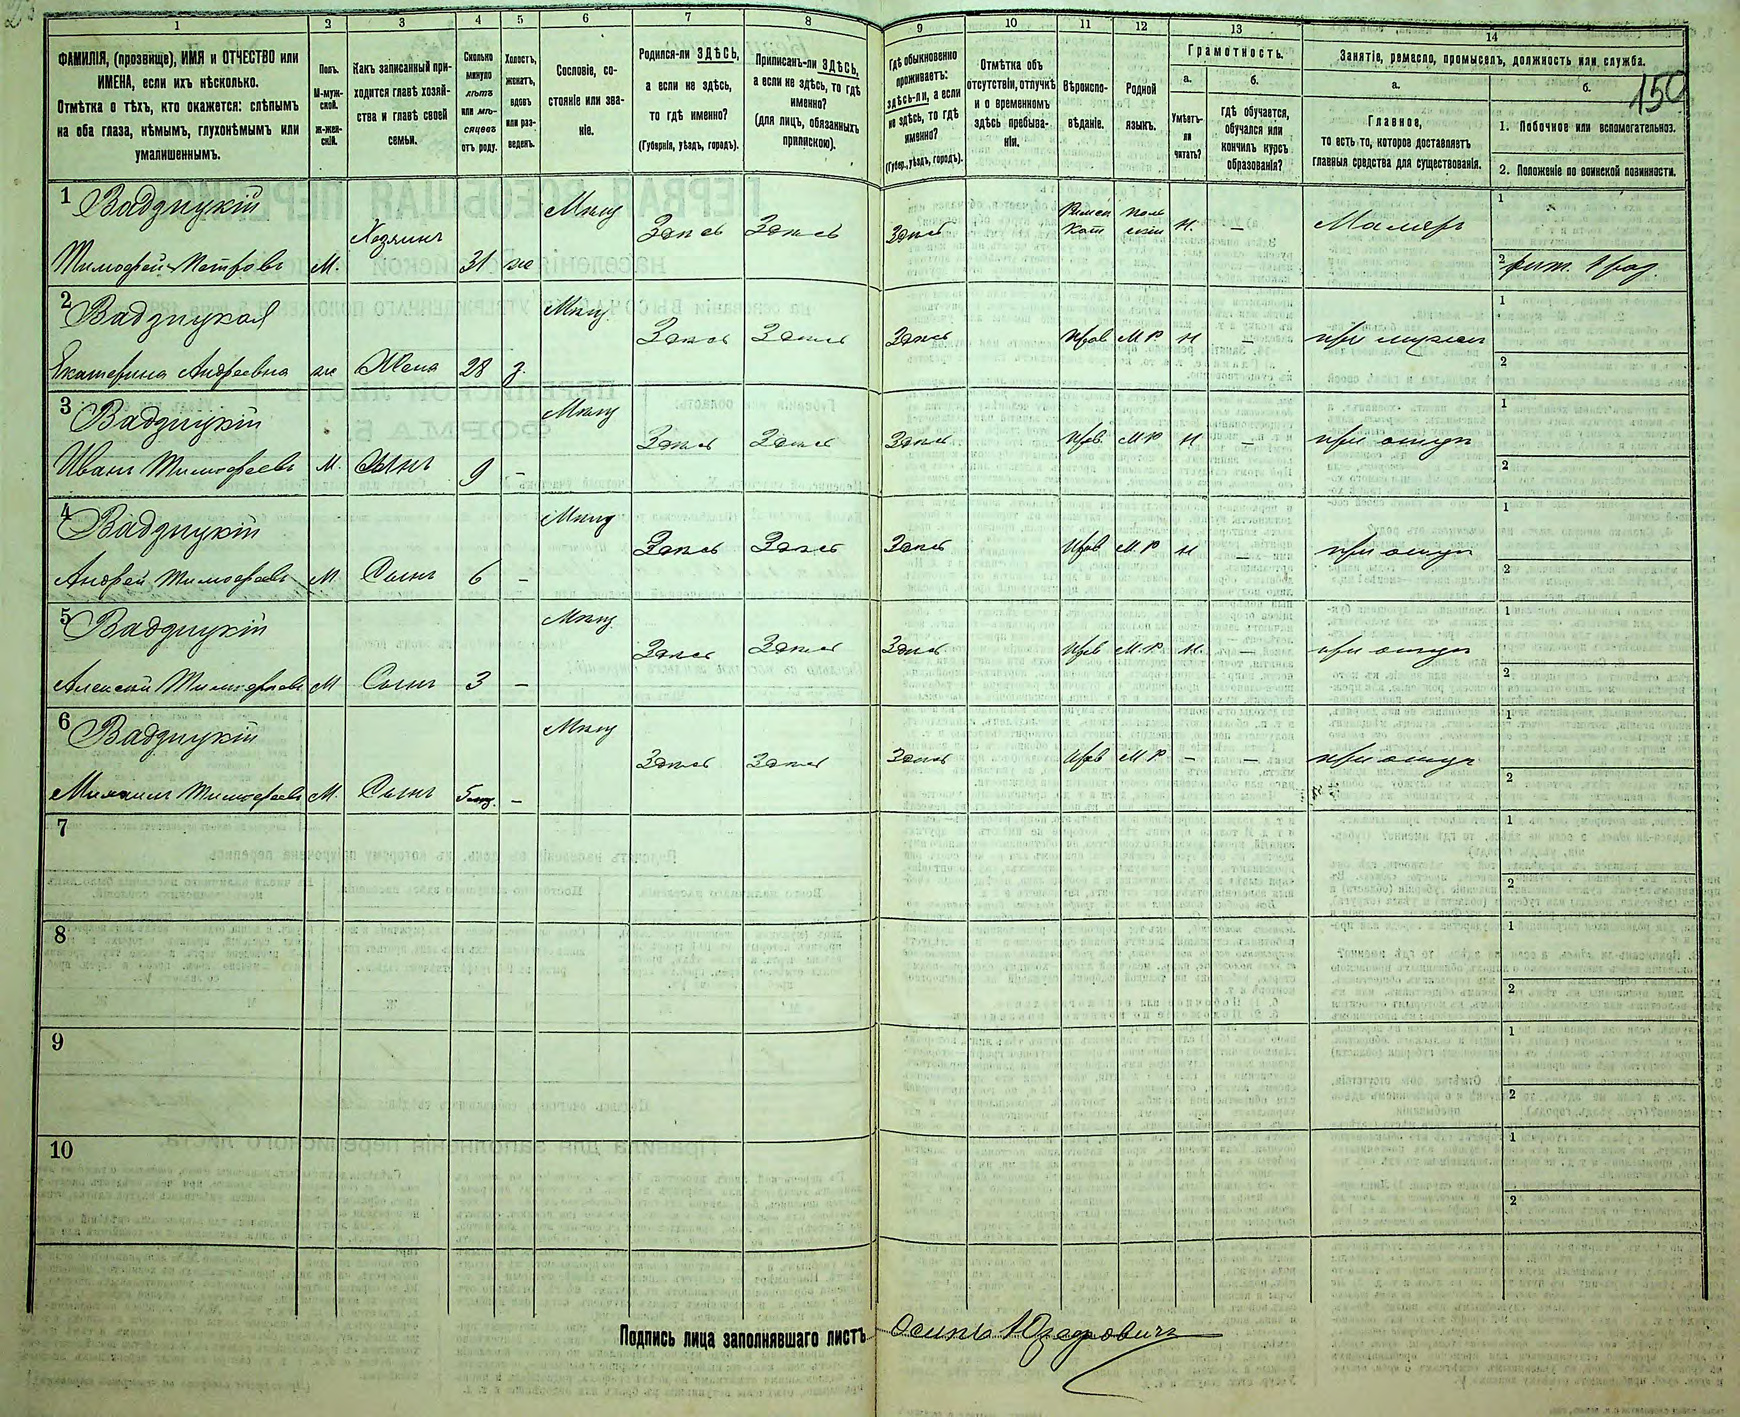 1
2
3
4
5
6
7
8
9
10
11
12
13
14
ФАМИЛІЯ, (прозвище), ИМЯ и ОТЧЕСТВО или
ИМЕНА, если ихъ нѣсколько.
Отмѣтка о тѣхъ, кто окажется: слѣпымъ
на оба глаза, нѣмымъ, глухонѣмымъ или
умалишеннымъ.
Полъ.
М-муж-
ской.
Ж-жен-
скій.
Какъ записанный при-
ходится главѣ хозяй-
ства и главѣ своей
семьи.
Сколько
минуло
лѣтъ
или мѣ-
сяцевъ
отъ роду.
Холостъ,
женатъ,
вдовъ
или раз-
веденъ.
Сословіе, со-
стояніе или зва-
ніе.
Родился-ли ЗДѢСЬ,
а если не здѣсь,
то гдѣ именно?
(Губернія, уѣздъ, городъ).
Приписанъ-ли ЗДѢСЬ,
а если не здѣсь, то гдѣ
именно?
(для лицъ, обязанныхъ
припискою).
Гдѣ обыкновенно
проживаетъ:
здѣсь-ли, а если
не здѣсь, то гдѣ
именно?
(Губер., уѣздъ, городъ).
Отмѣтка объ
отсутствіи, отлучкѣ
и о временномъ
здѣсь пребыва-
ніи.
Вѣроиспо-
вѣданіе.
Родной
языкъ.
Грамотность.
а.
Умѣетъ-
ли
читать?
б.
Гдѣ обучается,
обучался или
кончилъ курсъ
образованія?
Занятіе, ремесло, промыселъ, должность или служба.
а.
Главное,
то есть то, которое доставляетъ
главныя средства для существованія.
б.
150
1. Побочное или вспомогательноѣ.
2. Положеніе по воинской повинности.
1 Вадзицкій
Тимофей Петровъ М. Хозяинъ 31 же Мѣщ Здѣсь Здѣсь Здѣсь Римск Кат поль скій н. — Маляръ
1
2
2 Вадзицкая
Екатерина Андреевна ж Жена 28 з. Мѣщ Здѣсь Здѣсь Здѣсь Прав М Р н — при мужѣ
1
2
3 Вадзицкій
Иванъ Тимофеевъ М. Сынъ 9 — Мѣщ Здѣсь Здѣсь Здѣсь Прав М Р н — при отцѣ
1
2
4 Вадзицкій
Андрей Тимофеевъ М Сынъ 6 — Мѣщ Здѣсь Здѣсь Здѣсь Прав М. Р н — при отцѣ
1
2
5 Вадзицкій
Алексѣй Тимофеевъ М Сынъ 3 — Мѣщ Здѣсь Здѣсь Здѣсь Прав М. Р. н. — при отцѣ
1
2
6 Вадзицкій
Михаилъ Тимофеевъ М. Сынъ 5 — Мѣщ Здѣсь Здѣсь Здѣсь Прав М Р — — при отцѣ
1
2
7
1
2
8
1
2
9
1
2
10
1
2
Подпись лица заполнявшаго листъ Осипъ